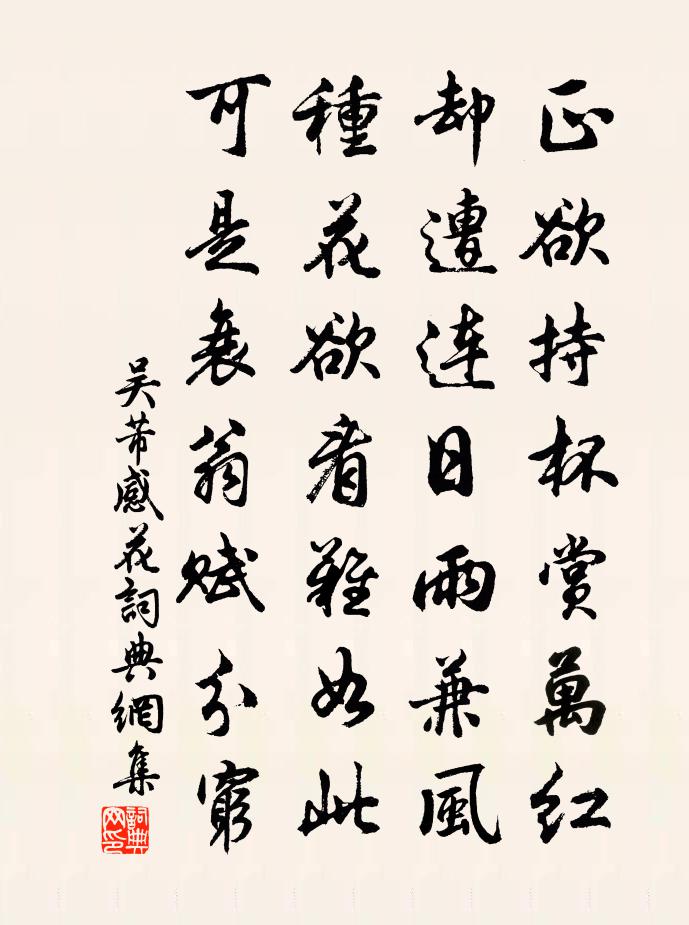 正欲持杯賞萬紅
却遭連日雨兼風
種花欲看難如此
可是衰翁賦分窮
吳芾感花詞典網集
詞典網印